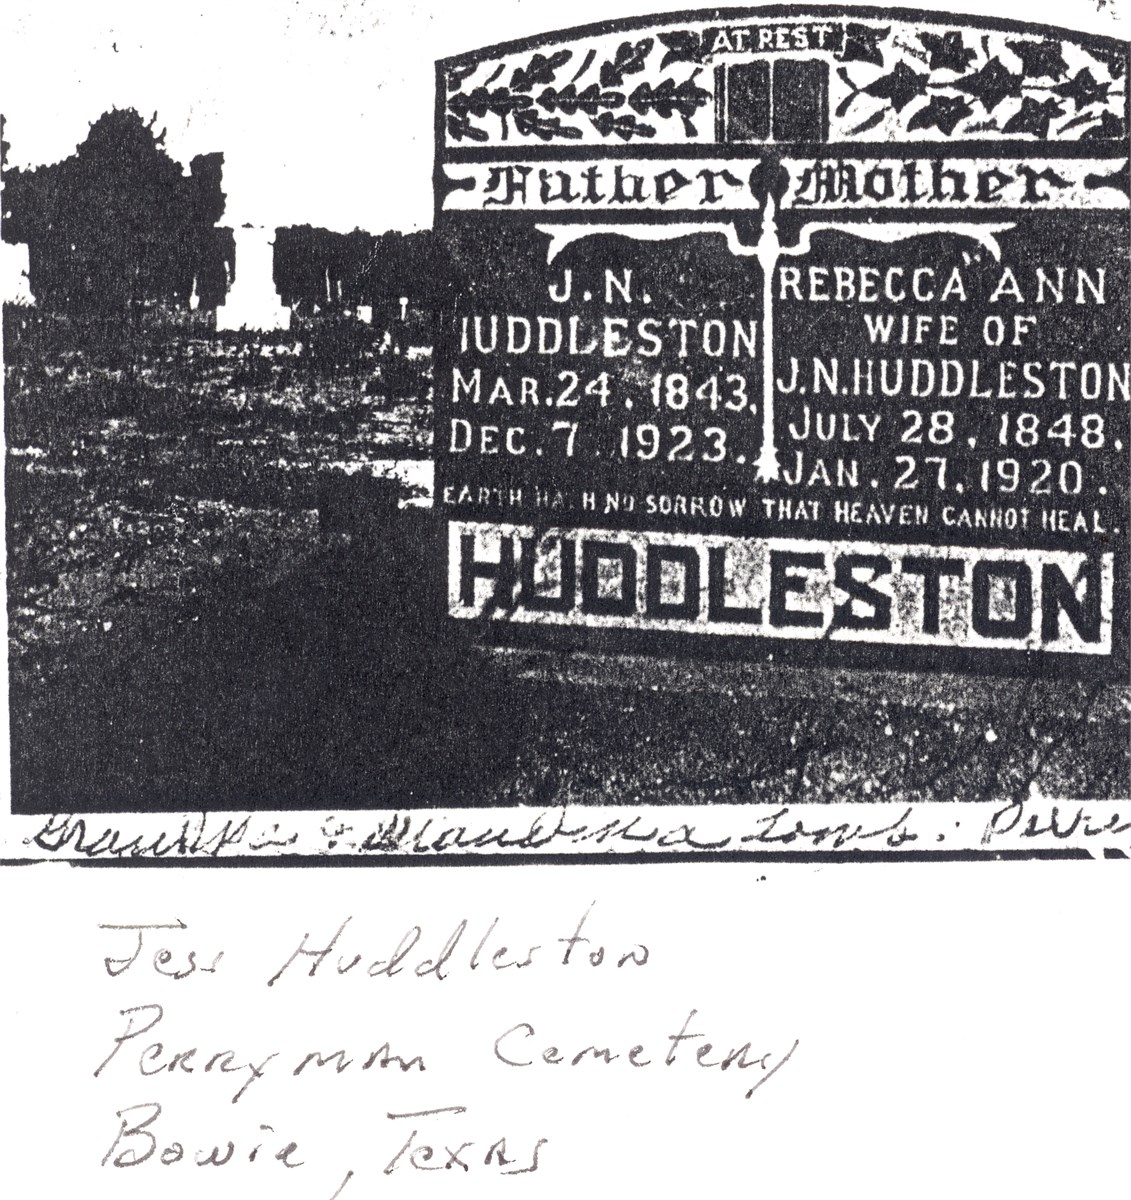 AT REST
Father Mother
J.N.
HUDDLESTON
MAR. 24. 1843.
DEC. 7 1923.
REBECCA" ANN
WIFE OF
J.N. HUDDLESTON
JULY 28, 1848.
JAN. 27. 1920.
EARTH HATH NO SORROW THAT HEAVEN CANNOT HEAL.
HUDDLESTON
GrandPa & GrandMa Tomb.
Jess Huddleston
Perryman Cemetery
Bowie, Texas